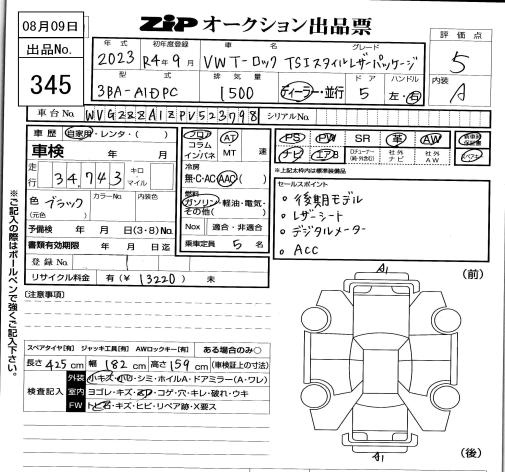 08月09日
出品No.
345
ZIP オークション出品票
評価点
5
内装
A
年式
2023
初年度登録
R4年9月
車名
VW T-ロック
グレード
TSIスタイルレザーパッケージ
型式
3BA-A1DPC
排気量
1500
ディーラー・並行
ドア
5
ハンドル
左・右
車台No.
WVGZZZA1ZPV523798
シリアルNo.
車歴 自家用・レンタ・( )
車検 年 月
走行 34,743 キロ マイル
色 ブラック
(元色)
カラーNo. 内装色
予備検 年 月 日(3・8)No.
書類有効期限 年 月 日迄
登録No.
リサイクル料金 有(¥ 13220) 未
フロア
コラム
インパネ
AT
・
MT
速
冷房
無・C・AC・AAC( )
燃料
ガソリン・軽油・電気・
その他( )
Nox 適合・非適合
乗車定員 5 名
PS PW SR 革 AW 新車時保証書
ナビ エアB Dチューナー 社外ナビ 社外AW
※上記太枠内は標準装備品
セールスポイント
○ 後期モデル
○ レザーシート
○ デジタルメーター
○ ACC
※ご記入の際はボールペンで強くご記入下さい。
[注意事項]
スペアタイヤ[有] ジャッキ工具[有] AWロックキー[有] ある場合のみ○
長さ 425 cm 幅 182 cm 高さ 159 cm (車検証上の寸法)
検査記入
外装 小キズ・小凹・シミ・ホイルA・ドアミラー(A・ワレ)
室内 ヨゴレ・キズ・コゲ・穴・キレ・破れ・ウキ
FW トビ石・キズ・ヒビ・リペア跡・X要ス
A1
(前)
A1
(後)